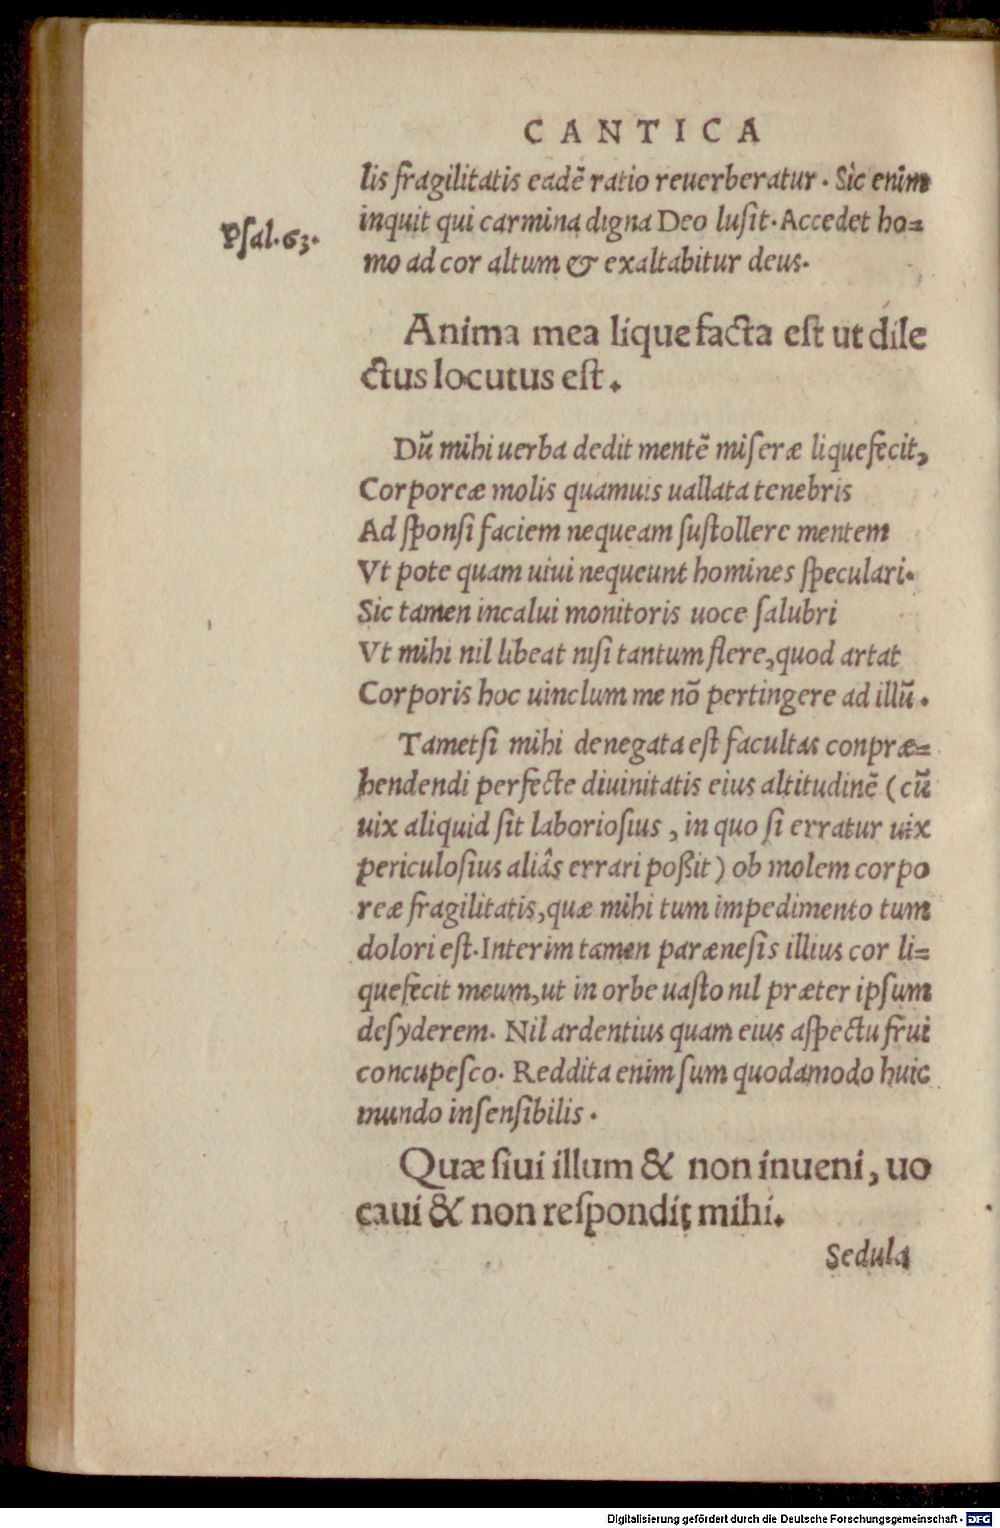 CANTICA
lis fragilitatis eadē ratio reuerberatur. Sic enim
Psal. 63. inquit qui carmina digna Deo lusit. Accedet ho=
mo ad cor altum & exaltabitur deus.
Anima mea liquefacta est ut dile
ctus locutus est.
Dū mihi uerba dedit mentē miseræ liquefecit,
Corporeæ molis quamuis uallata tenebris
Ad sponsi faciem nequeam sustollere mentem
Vt pote quam uiui nequeunt homines speculari.
Sic tamen incalui monitoris uoce salubri
Vt mihi nil libeat nisi tantum flere, quod artat
Corporis hoc uinclum me nō pertingere ad illū.
Tametsi mihi denegata est facultas conpræ=
hendendi perfecte diuinitatis eius altitudinē (cū
uix aliquid sit laboriosius, in quo si erratur uix
periculosius aliâs errari poßit) ob molem corpo
reæ fragilitatis, quæ mihi tum impedimento tum
dolori est. Interim tamen parænesis illius cor li=
quefecit meum, ut in orbe uasto nil præter ipsum
desyderem. Nil ardentius quam eius aspectu frui
concupesco. Reddita enim sum quodamodo huic
mundo insensibilis.
Quæsiui illum & non inueni, uo
caui & non respondit mihi.
Sedula
Digitalisierung gefördert durch die Deutsche Forschungsgemeinschaft - DFG